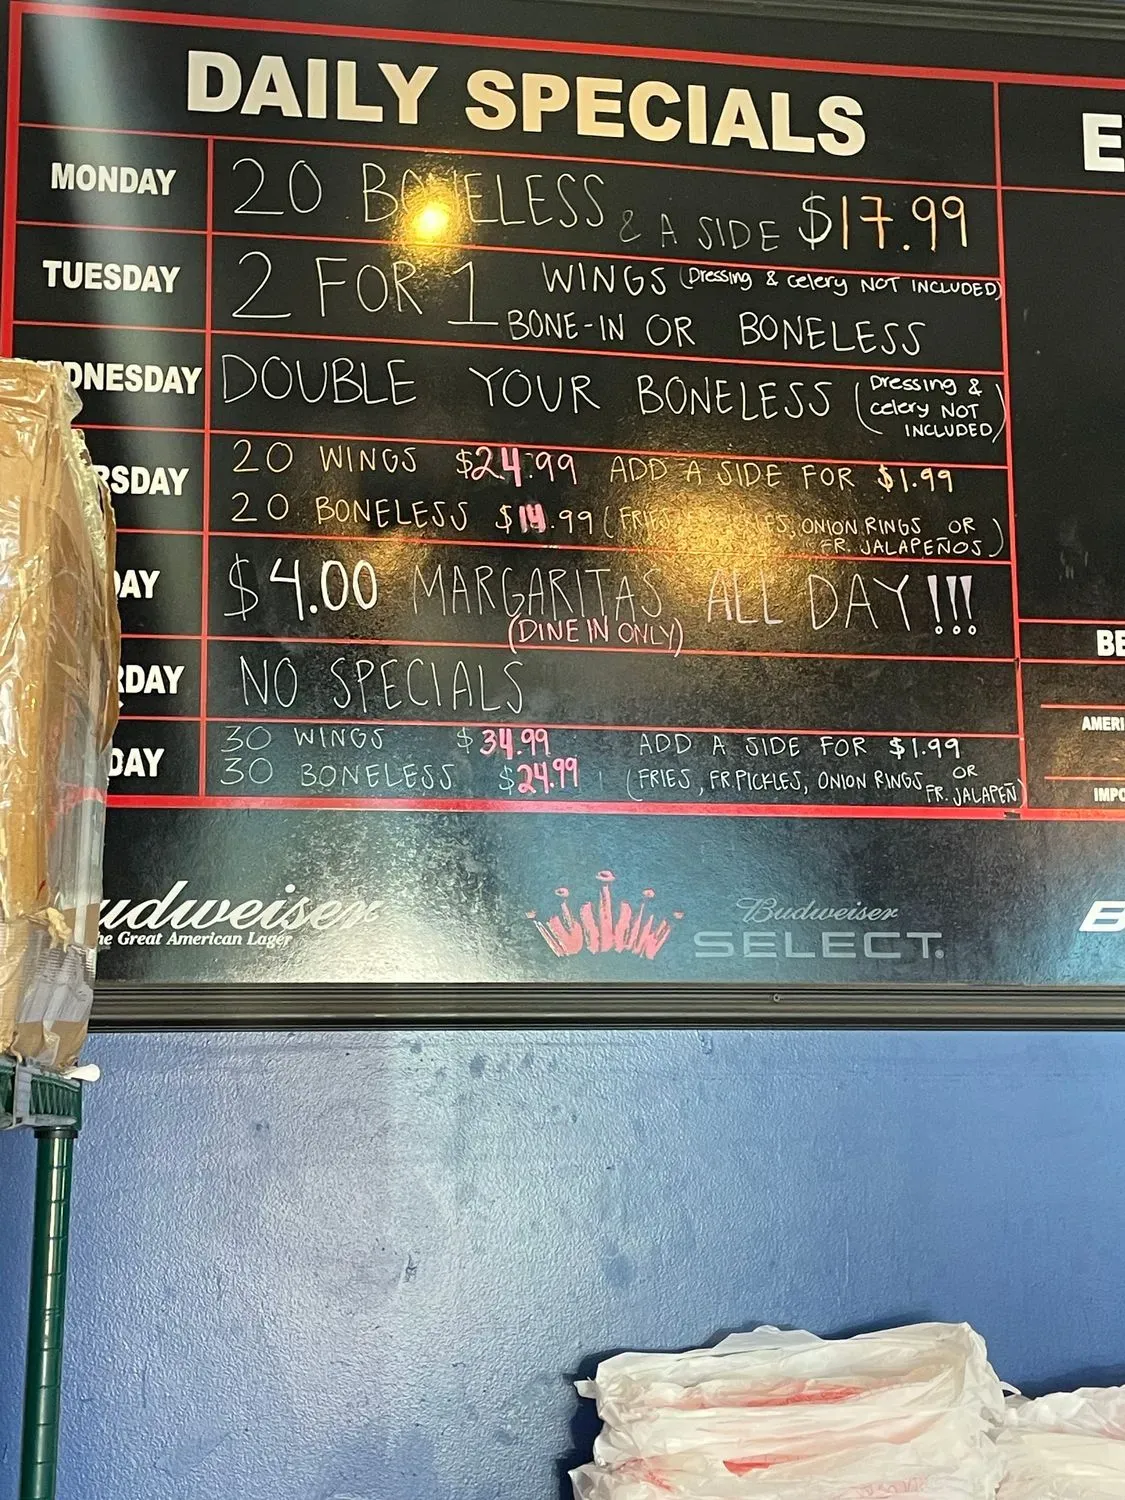 DAILY SPECIALS
MONDAY
20 BONELESS & A SIDE $17.99
TUESDAY
2 FOR 1 WINGS (Dressing & celery NOT INCLUDED)
BONE-IN OR BONELESS
DNESDAY
DOUBLE YOUR BONELESS (Dressing &
celery NOT
INCLUDED)
RSDAY
20 WINGS $24.99 ADD A SIDE FOR $1.99
20 BONELESS $14.99 (FRIES, ONION RINGS OR
FR. JALAPEÑOS)
DAY
$4.00 MARGARITAS ALL DAY!!!
(DINE IN ONLY)
RDAY
NO SPECIALS
DAY
30 WINGS $34.99 ADD A SIDE FOR $1.99
30 BONELESS $24.99 (FRIES, FR.PICKLES, ONION RINGS OR
FR. JALAPEÑ)
E
BE
AMERI
IMPO
udweiser
he Great American Lager
Budweiser
SELECT.
B